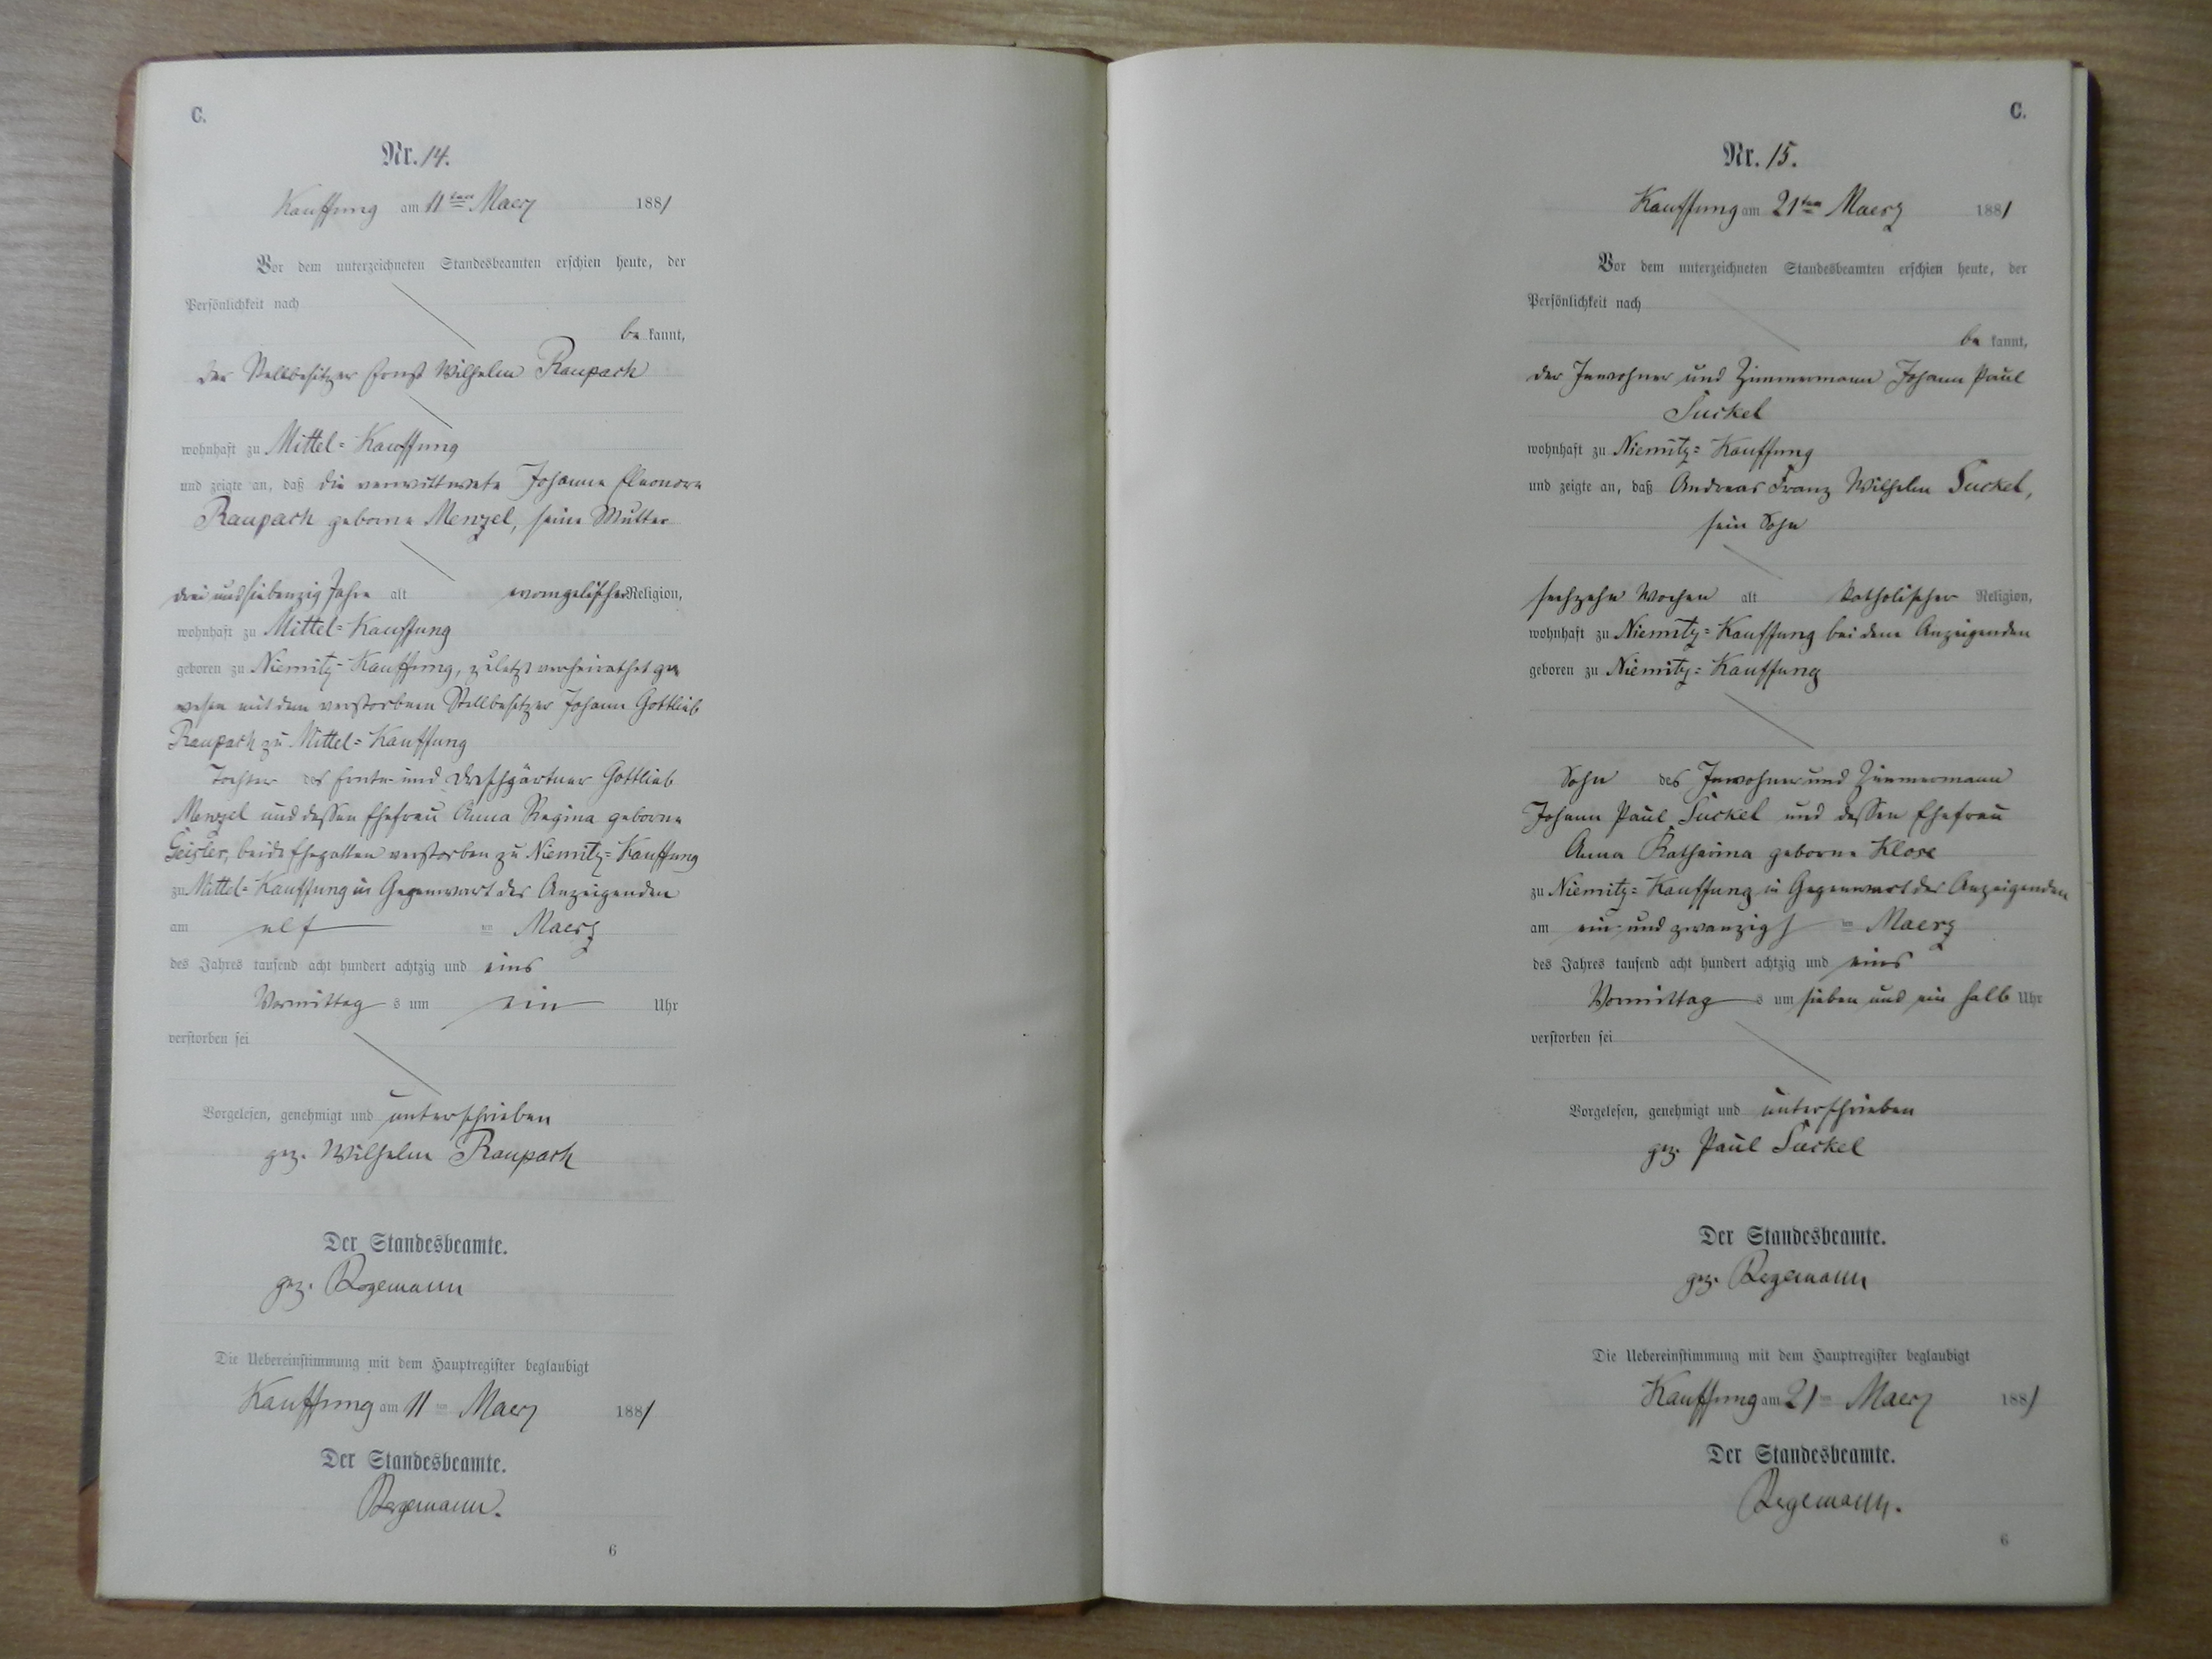 C.
Nr. 14.
Kauffung am 11ten Maerz 1881
Vor dem unterzeichneten Standesbeamten erschien heute, der
Persönlichkeit nach
be kannt,
der Stellbesitzer Ernst Wilhelm Raupach
wohnhaft zu Mittel=Kauffung
und zeigte an, daß die verwittwete Johanne Eleonore
Raupach geborne Menzel, seine Mutter
drei und siebenzig Jahre alt evangelischer Religion,
wohnhaft zu Mittel=Kauffung
geboren zu Niemitz=Kauffung, zuletzt verheirathet ge
wesen mit dem verstorbenen Stellbesitzer Johann Gottlieb
Raupach zu Mittel=Kauffung
Tochter des Ernte- und Dreschgärtner Gottlieb
Menzel und dessen Ehefrau Anna Regina geborne
Geisler, beide Ehegatten verstorben zu Niemitz=Kauffung
zu Mittel=Kauffung in Gegenwart des Anzeigenden
am elf ten Maerz
des Jahres tausend acht hundert achtzig und eins
Vormittag s um ein Uhr
verstorben sei
Vorgelesen, genehmigt und unterschrieben
gez. Wilhelm Raupach
Der Standesbeamte.
gez. Regemann
Die Uebereinstimmung mit dem Hauptregister beglaubigt
Kauffung am 11 ten Maerz 1881
Der Standesbeamte.
Regemann.
6
C.
Nr. 15.
Kauffung am 21ten Maerz 1881
Vor dem unterzeichneten Standesbeamten erschien heute, der
Persönlichkeit nach
be kannt,
der Inwohner und Zimmermann Johann Paul
Suckel
wohnhaft zu Niemitz=Kauffung
und zeigte an, daß Andreas Franz Wilhelm Suckel,
sein Sohn
sechzehn Wochen alt katholischer Religion,
wohnhaft zu Niemitz=Kauffung bei dem Anzeigenden
geboren zu Niemitz=Kauffung
Sohn des Inwohner und Zimmermann
Johann Paul Suckel und dessen Ehefrau
Anna Katharina geborne Klose
zu Niemitz=Kauffung in Gegenwart des Anzeigenden
am ein- und zwanzigs ten Maerz
des Jahres tausend acht hundert achtzig und eins
Vormittag s um sieben und ein halb Uhr
verstorben sei
Vorgelesen, genehmigt und unterschrieben
gez. Paul Suckel
Der Standesbeamte.
gez. Regemann
Die Uebereinstimmung mit dem Hauptregister beglaubigt
Kauffung am 21 ten Maerz 1881
Der Standesbeamte.
Regemann.
6